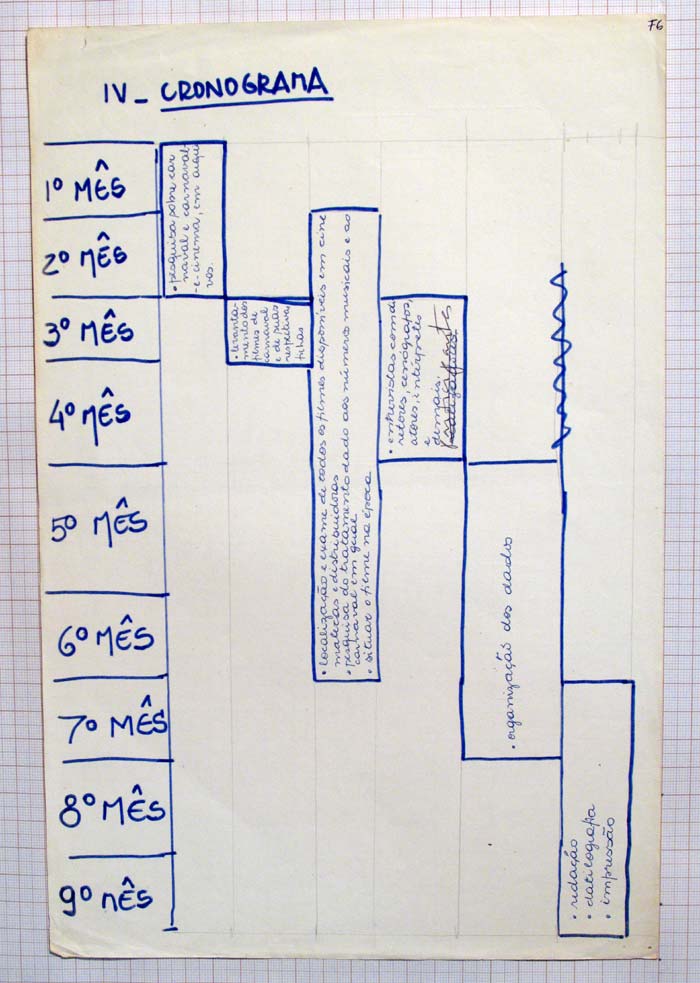 F6
IV - CRONOGRAMA
1º MÊS
2º MÊS
3º MÊS
4º MÊS
5º MÊS
6º MÊS
7º MÊS
8º MÊS
9º MÊS
• pesquisa sobre car
naval e carnaval-
-e-cinema, em arqui
vos.
• levanta-
mento dos
filmes de
carnaval
e de suas
respectivas
fichas
• localização e exame de todos os filmes disponíveis em cine
matecas e distribuidoras
• pesquisa do tratamento dado aos número musicais e ao
carnaval em geral
• situar o filme na época
• entrevistas com di
retores, cenógrafos,
atores, intérpretes
e
demais.
• organização dos dados
• redação
• datilografia
• impressão